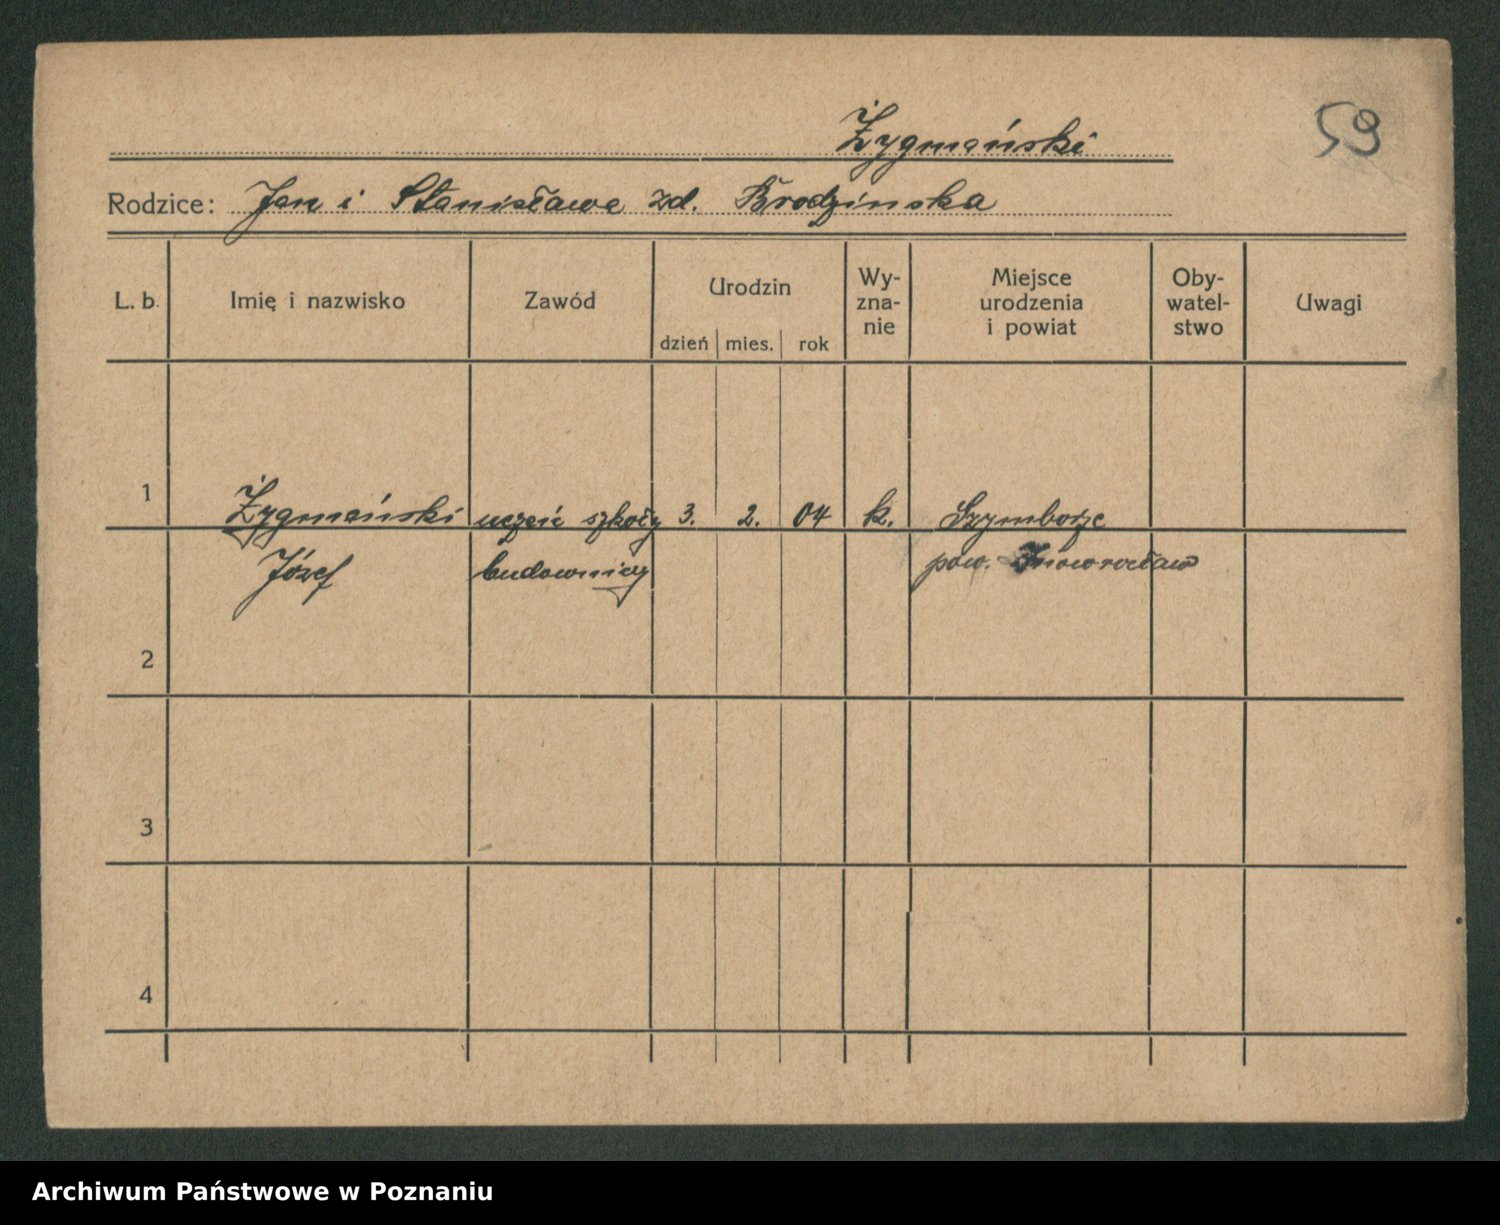 Żygmański
59
Rodzice: Jan i Stanisława zd. Brodzinska
L. b. Imię i nazwisko Zawód Urodzin Wy-zna-nie Miejsce urodzenia i powiat Oby-watel-stwo Uwagi
dzień mies. rok
1 Żygmański uczeń szkoły 3. 2. 04 k. Szymborze
Józef budowniczy pow. Inowrocław
2
3
4
Archiwum Państwowe w Poznaniu